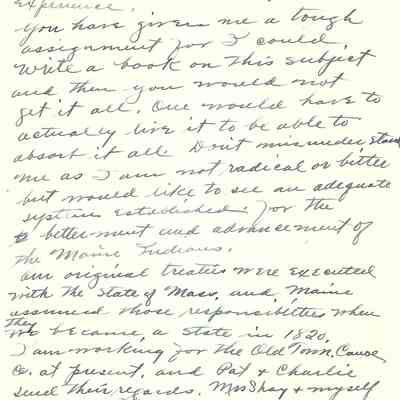 experience.
You have given me a tough
assignment for I could
write a book on this subject
and then you would not
get it all. One would have to
actually live it to be able to
absorb it all. Don't misunderstand
me as I am not radical or bitter
but would like to see an adequate
system established for the
better-ment and advancement of
the Maine Indians.
Our original treaties were executed
with the State of Mass. and Maine
assumed those responsiblties when
They became a state in 1820.
I am working for the Old Town Canoe
Co. at present, and Pat + Charlie
send their regards. Mrs Shay + myself